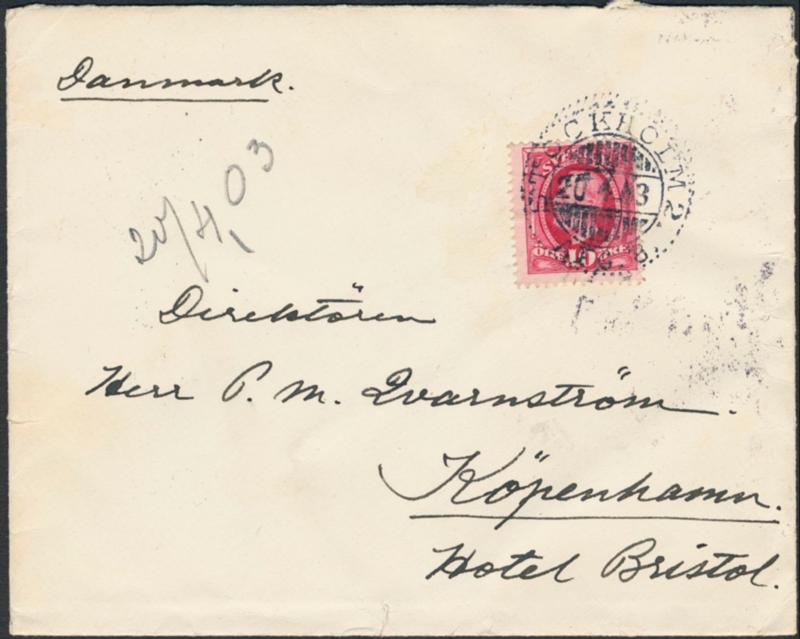 Danmark.
20/4 03
STOCKHOLM 2
20 4 03
10
ÖRE
Direktören
Herr P. M. Qvarnström.
Köpenhamn.
Hotel Bristol.